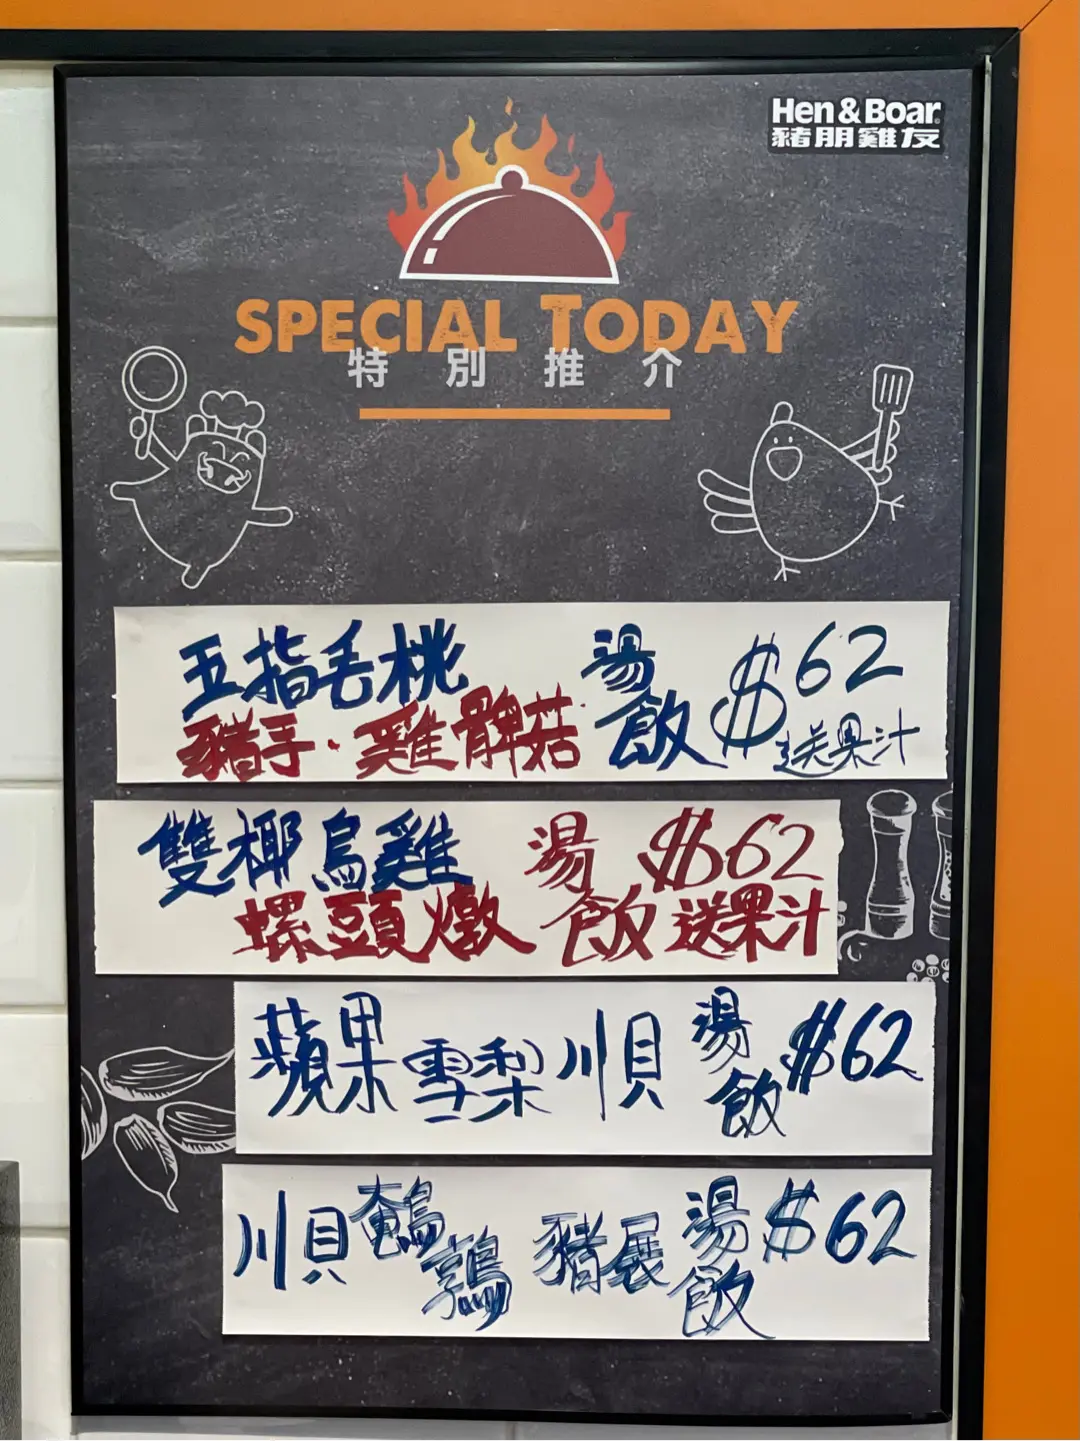 Hen & Boar
豬朋雞友
SPECIAL TODAY
特別推介
五指毛桃 湯 $62
豬手·雞髀菇 飯 送果汁
雙椰烏雞 湯 $62
螺頭燉 飯 送果汁
蘋果雪梨川貝 湯飯 $62
川貝鵪鶉 豬展 湯飯 $62